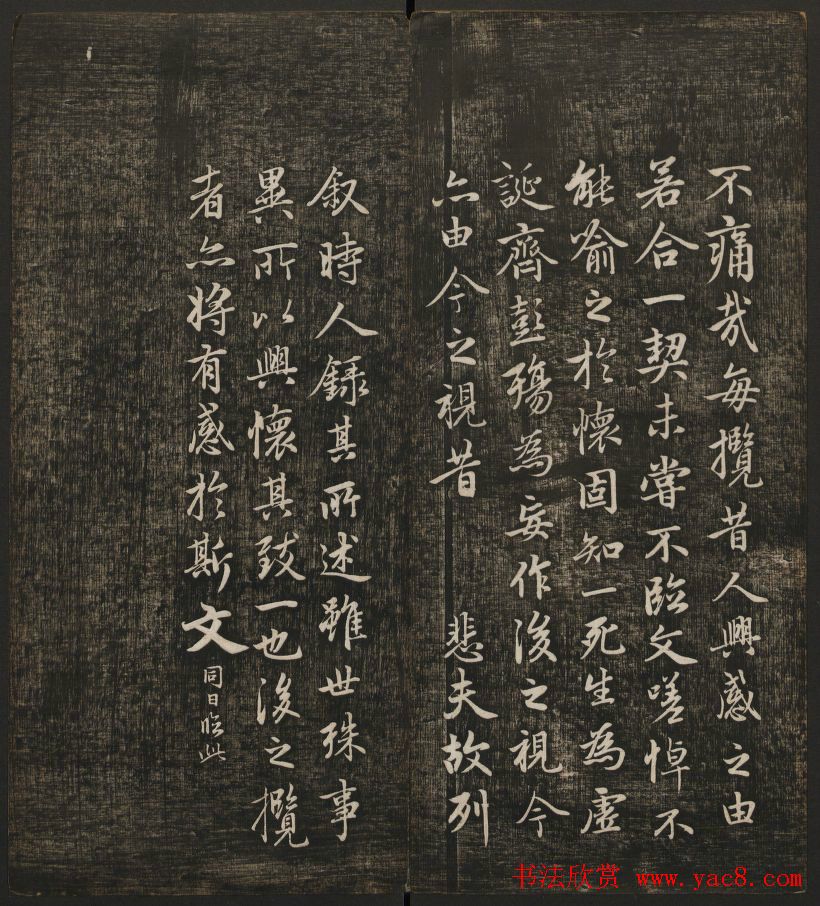 不痛哉每攬昔人興感之由
若合一契未嘗不臨文嗟悼不
能喻之於懷固知一死生為虛
誕齊彭殤為妄作後之視今
亦由今之視昔 悲夫故列
叙時人錄其所述雖世殊事
異所以興懷其致一也後之攬
者亦將有感於斯文
同日臨此
书法欣赏 www.yac8.com